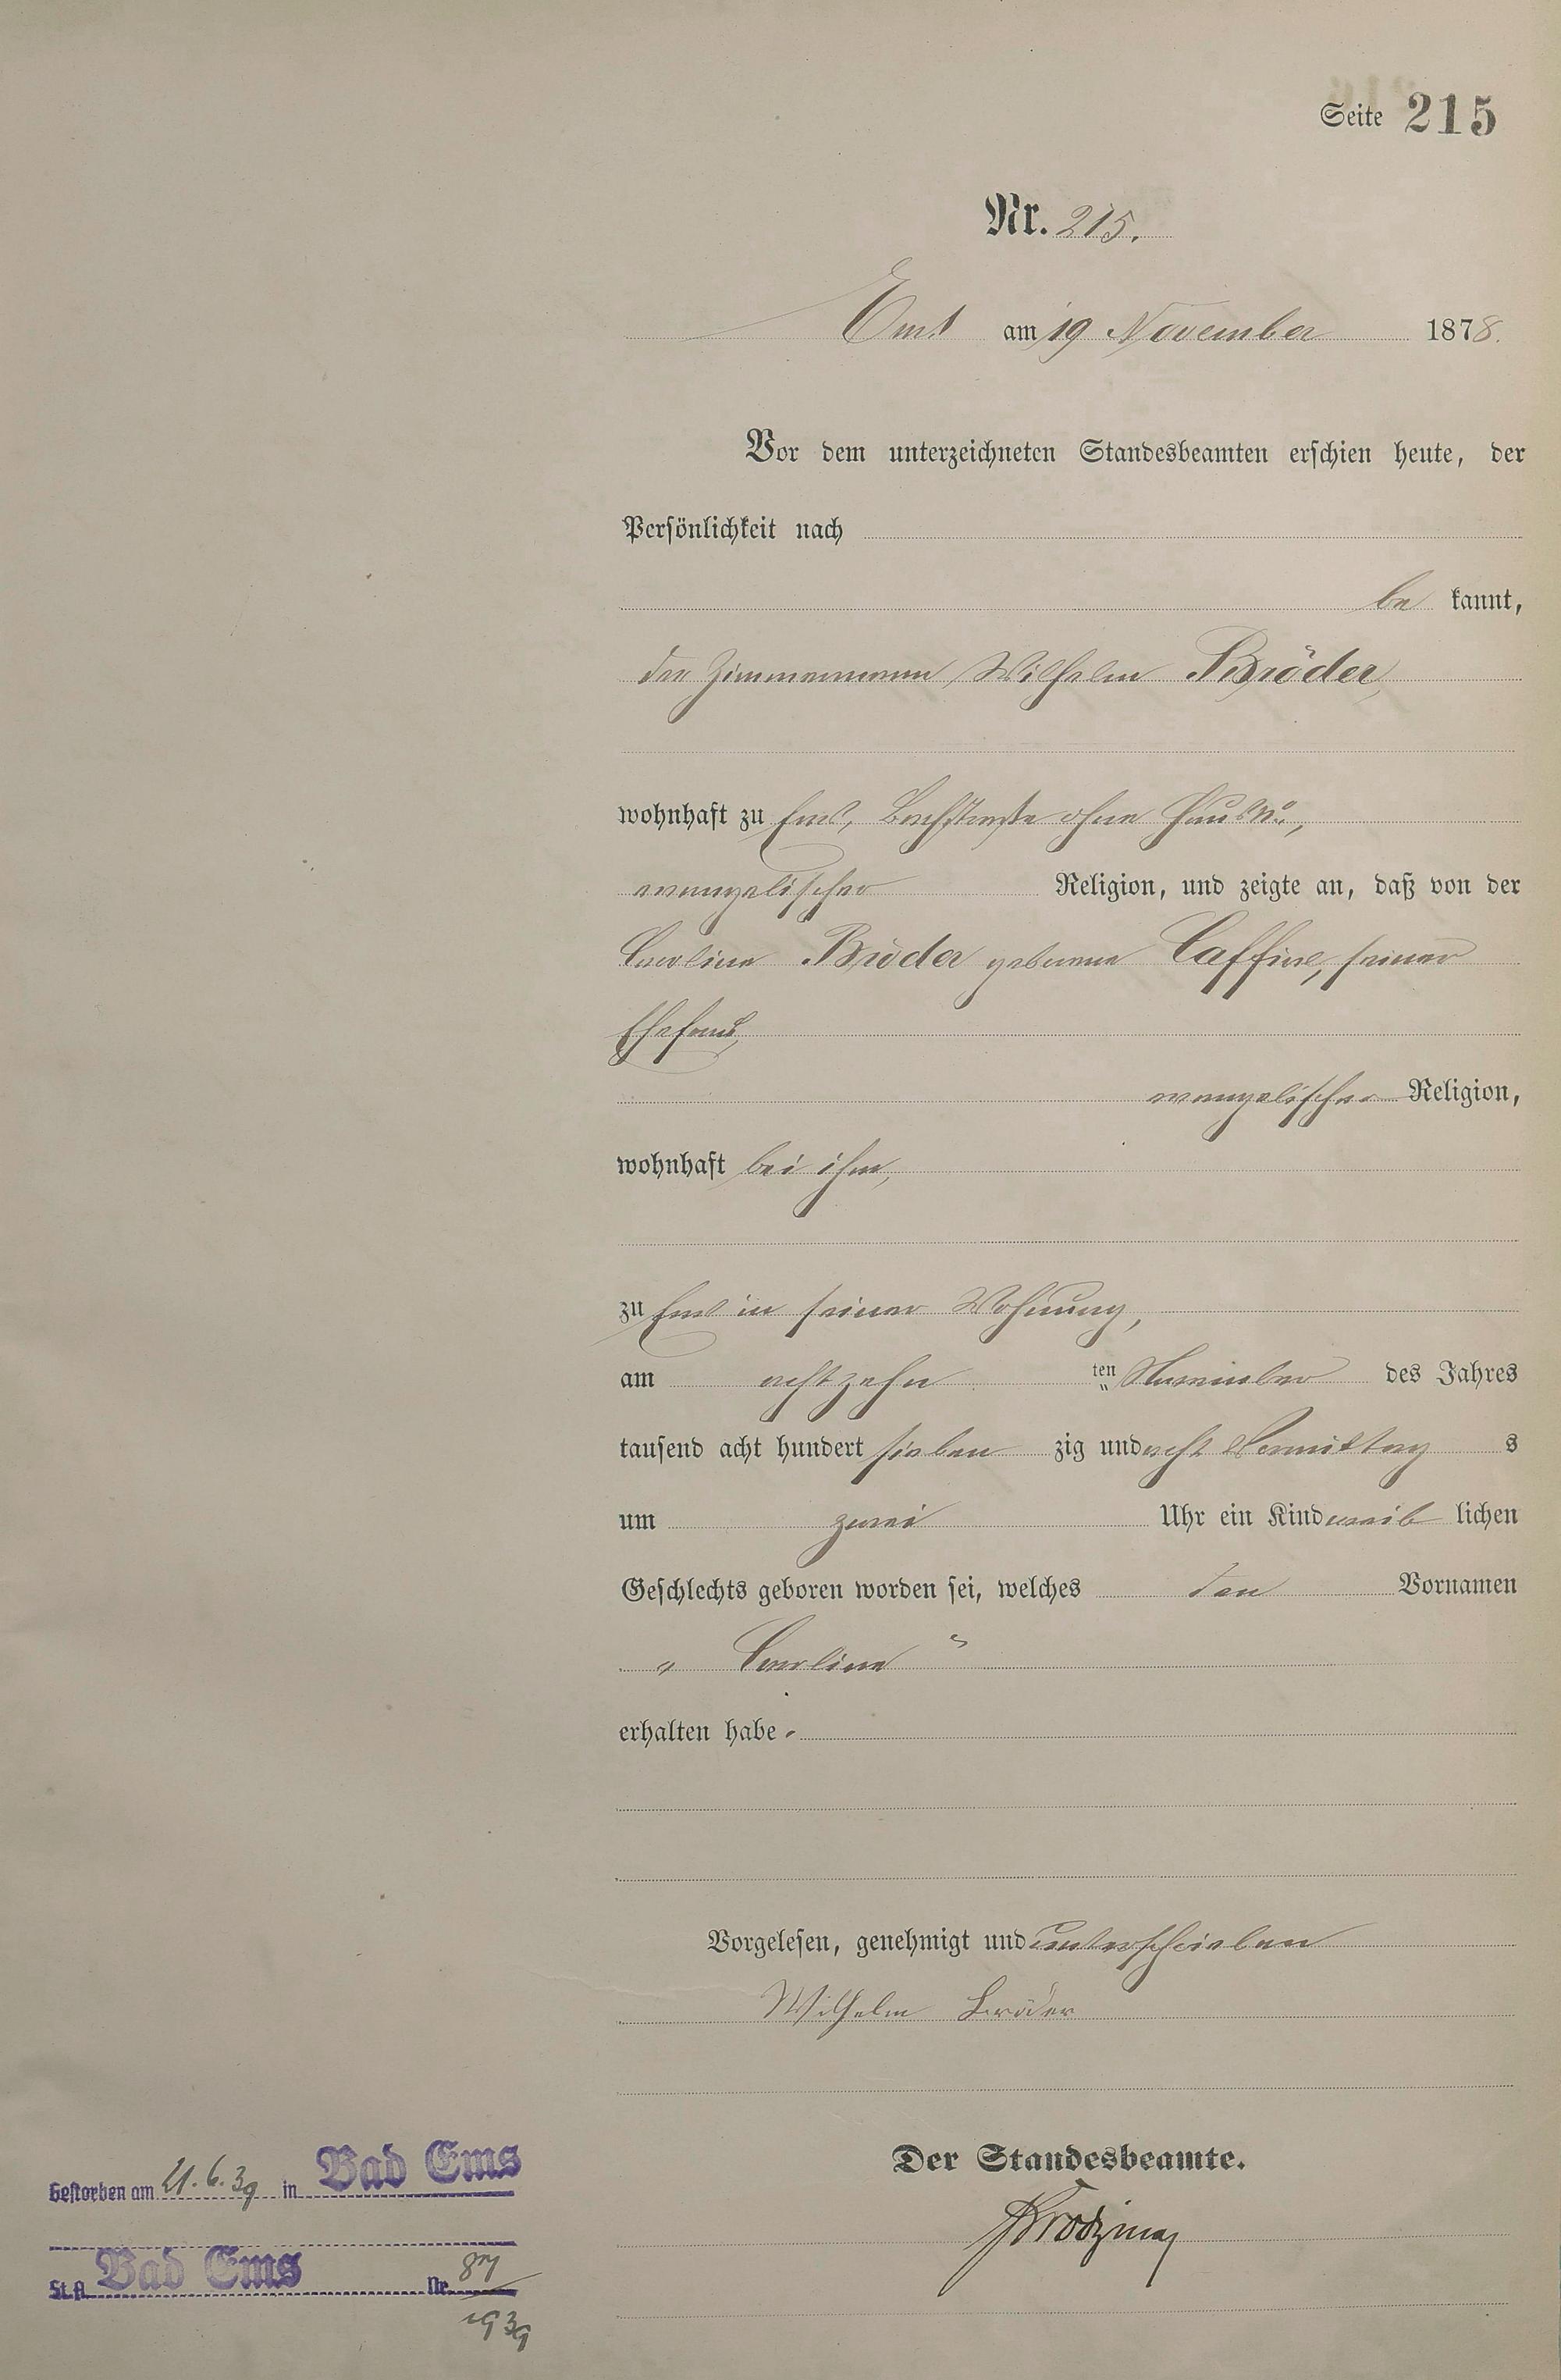 Seite 215
Nr. 215.
Ems am 19 November 1878.
Vor dem unterzeichneten Standesbeamten erschien heute, der
Persönlichkeit nach
be kannt,
der Zimmermann Wilhelm Bröder,
wohnhaft zu Ems, Bachstraße ohne Haus No.,
evangelischer Religion, und zeigte an, daß von der
Caroline Bröder geborene Caffine, seiner
Ehefrau,
evangelischer Religion,
wohnhaft bei ihm,
zu Ems in seiner Wohnung,
am achtzehn ten November des Jahres
tausend acht hundert sieben zig und acht Vormittag s
um zwei Uhr ein Kind weib lichen
Geschlechts geboren worden sei, welches den Vornamen
„ Caroline “
erhalten habe.
Vorgelesen, genehmigt und unterschrieben
Wilhelm Bröder
Der Standesbeamte.
Gestorben am 21.6.39 in Bad Ems
St.A. Bad Ems Nr. 87
1939